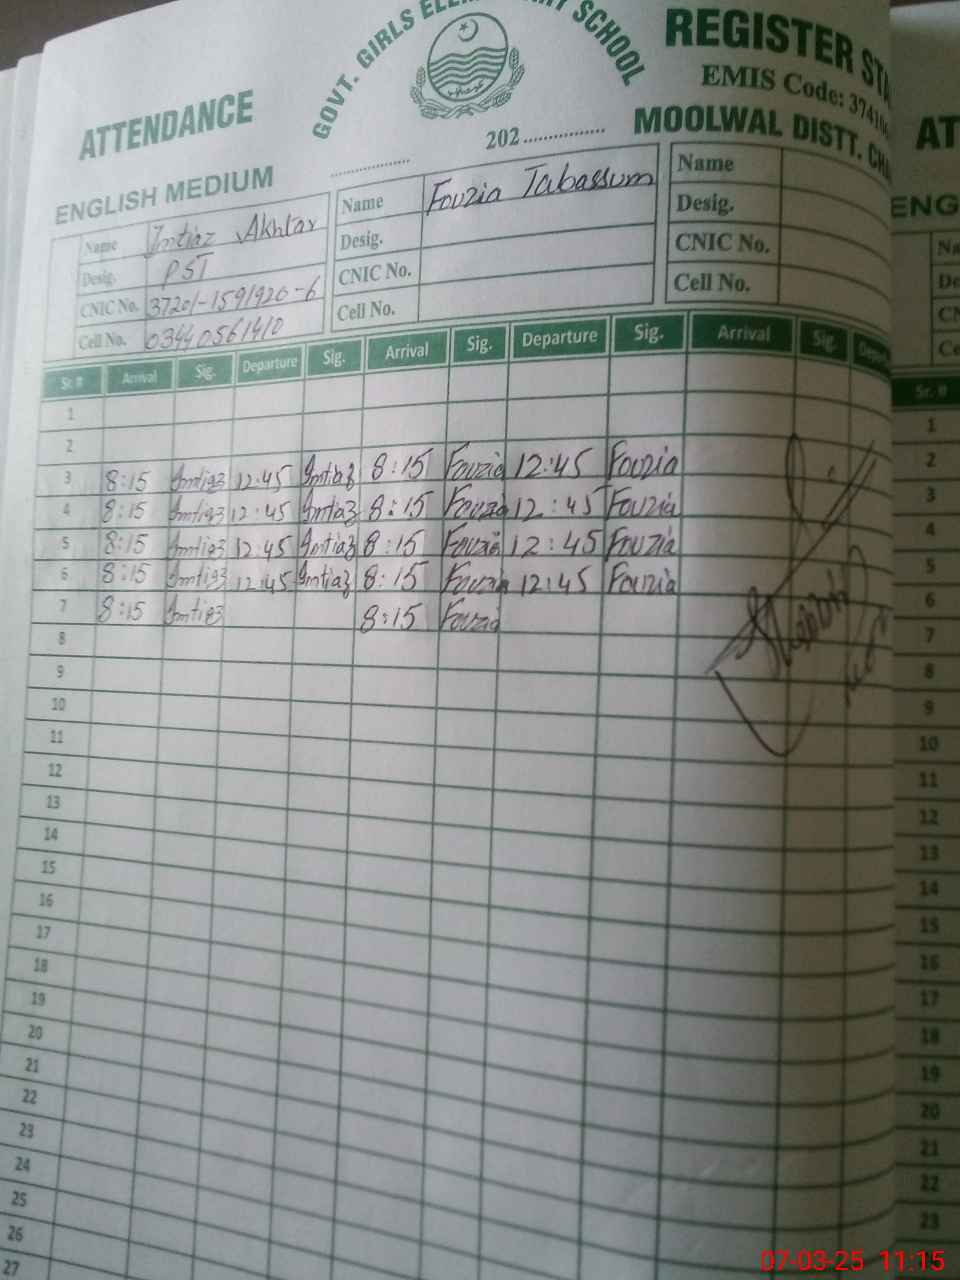 GOVT. GIRLS ELEMENTARY SCHOOL
ATTENDANCE
REGISTER
EMIS Code:
202
MOOLWAL DISTT.
ENGLISH MEDIUM
Name Imtiaz Akhtar Name Fouzia Tabassum Name
Desig. PST Desig. Desig.
CNIC No. 37201-1591920-6 CNIC No. CNIC No.
Cell No. 03440561410 Cell No. Cell No.
Sr. # Arrival Sig. Departure Sig. Arrival Sig. Departure Sig. Arrival Sig. Sr. #
1 1
2 2
3 8:15 Imtiaz 12:45 Imtiaz 8:15 Fouzia 12:45 Fouzia 3
4 8:15 Imtiaz 12:45 Imtiaz 8:15 Fouzia 12:45 Fouzia 4
5 8:15 Imtiaz 12:45 Imtiaz 8:15 Fouzia 12:45 Fouzia 5
6 8:15 Imtiaz 12:45 Imtiaz 8:15 Fouzia 12:45 Fouzia 6
7 8:15 Imtiaz 8:15 Fouzia 7
8 8
9 9
10 10
11 11
12 12
13 13
14 14
15 15
16 16
17 17
18 18
19 19
20 20
21 21
22 22
23 23
24
25
26
27
07-03-25 11:15